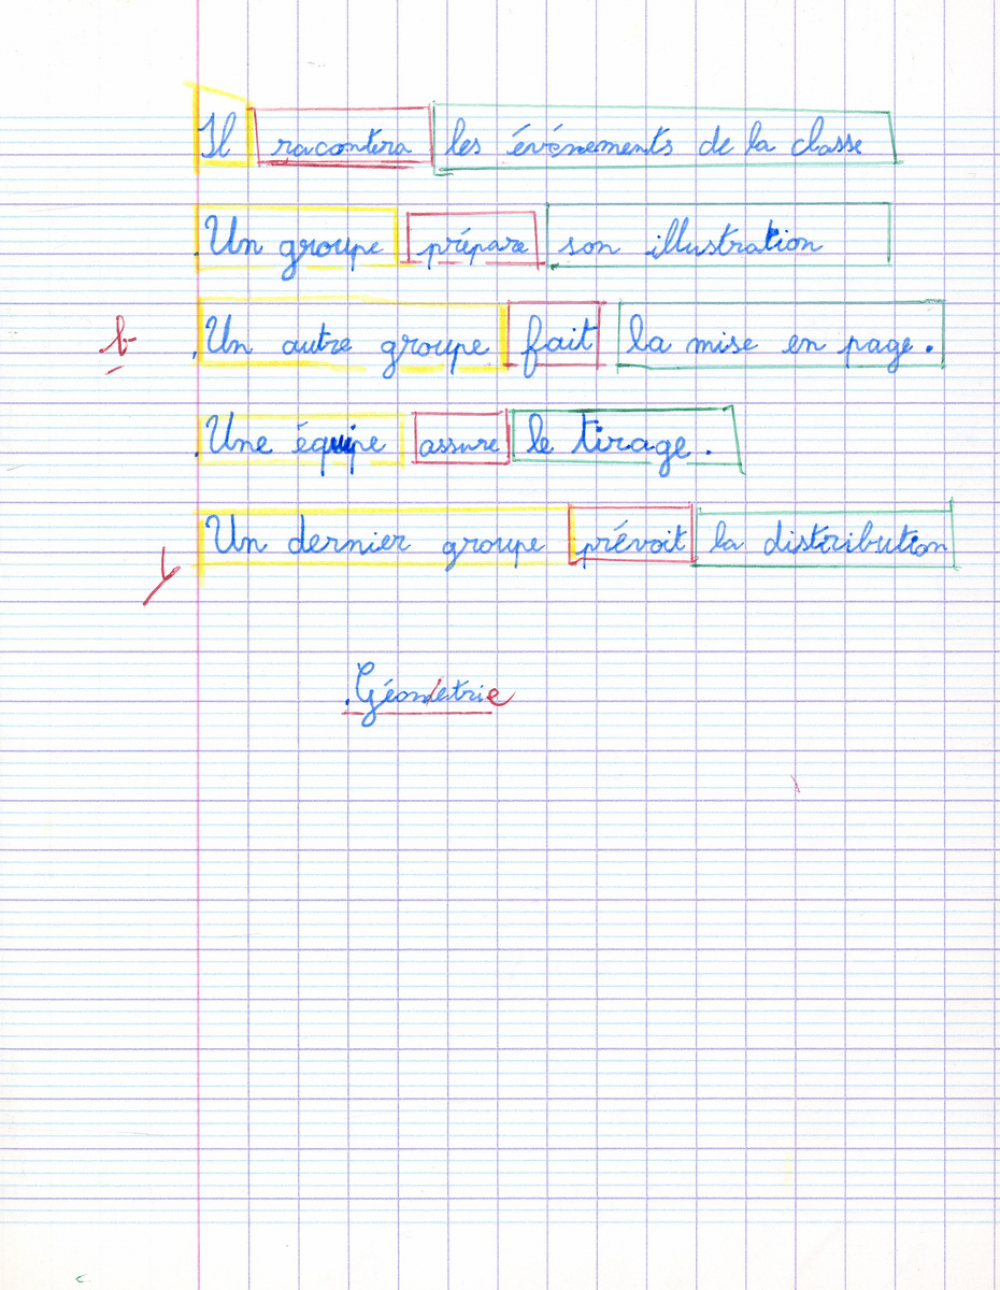 Il racontera les événements de la classe
Un groupe prépare son illustration
Un autre groupe fait la mise en page.
b
Une équipe assure le tirage.
Un dernier groupe prévoit la distribution
Géométrie